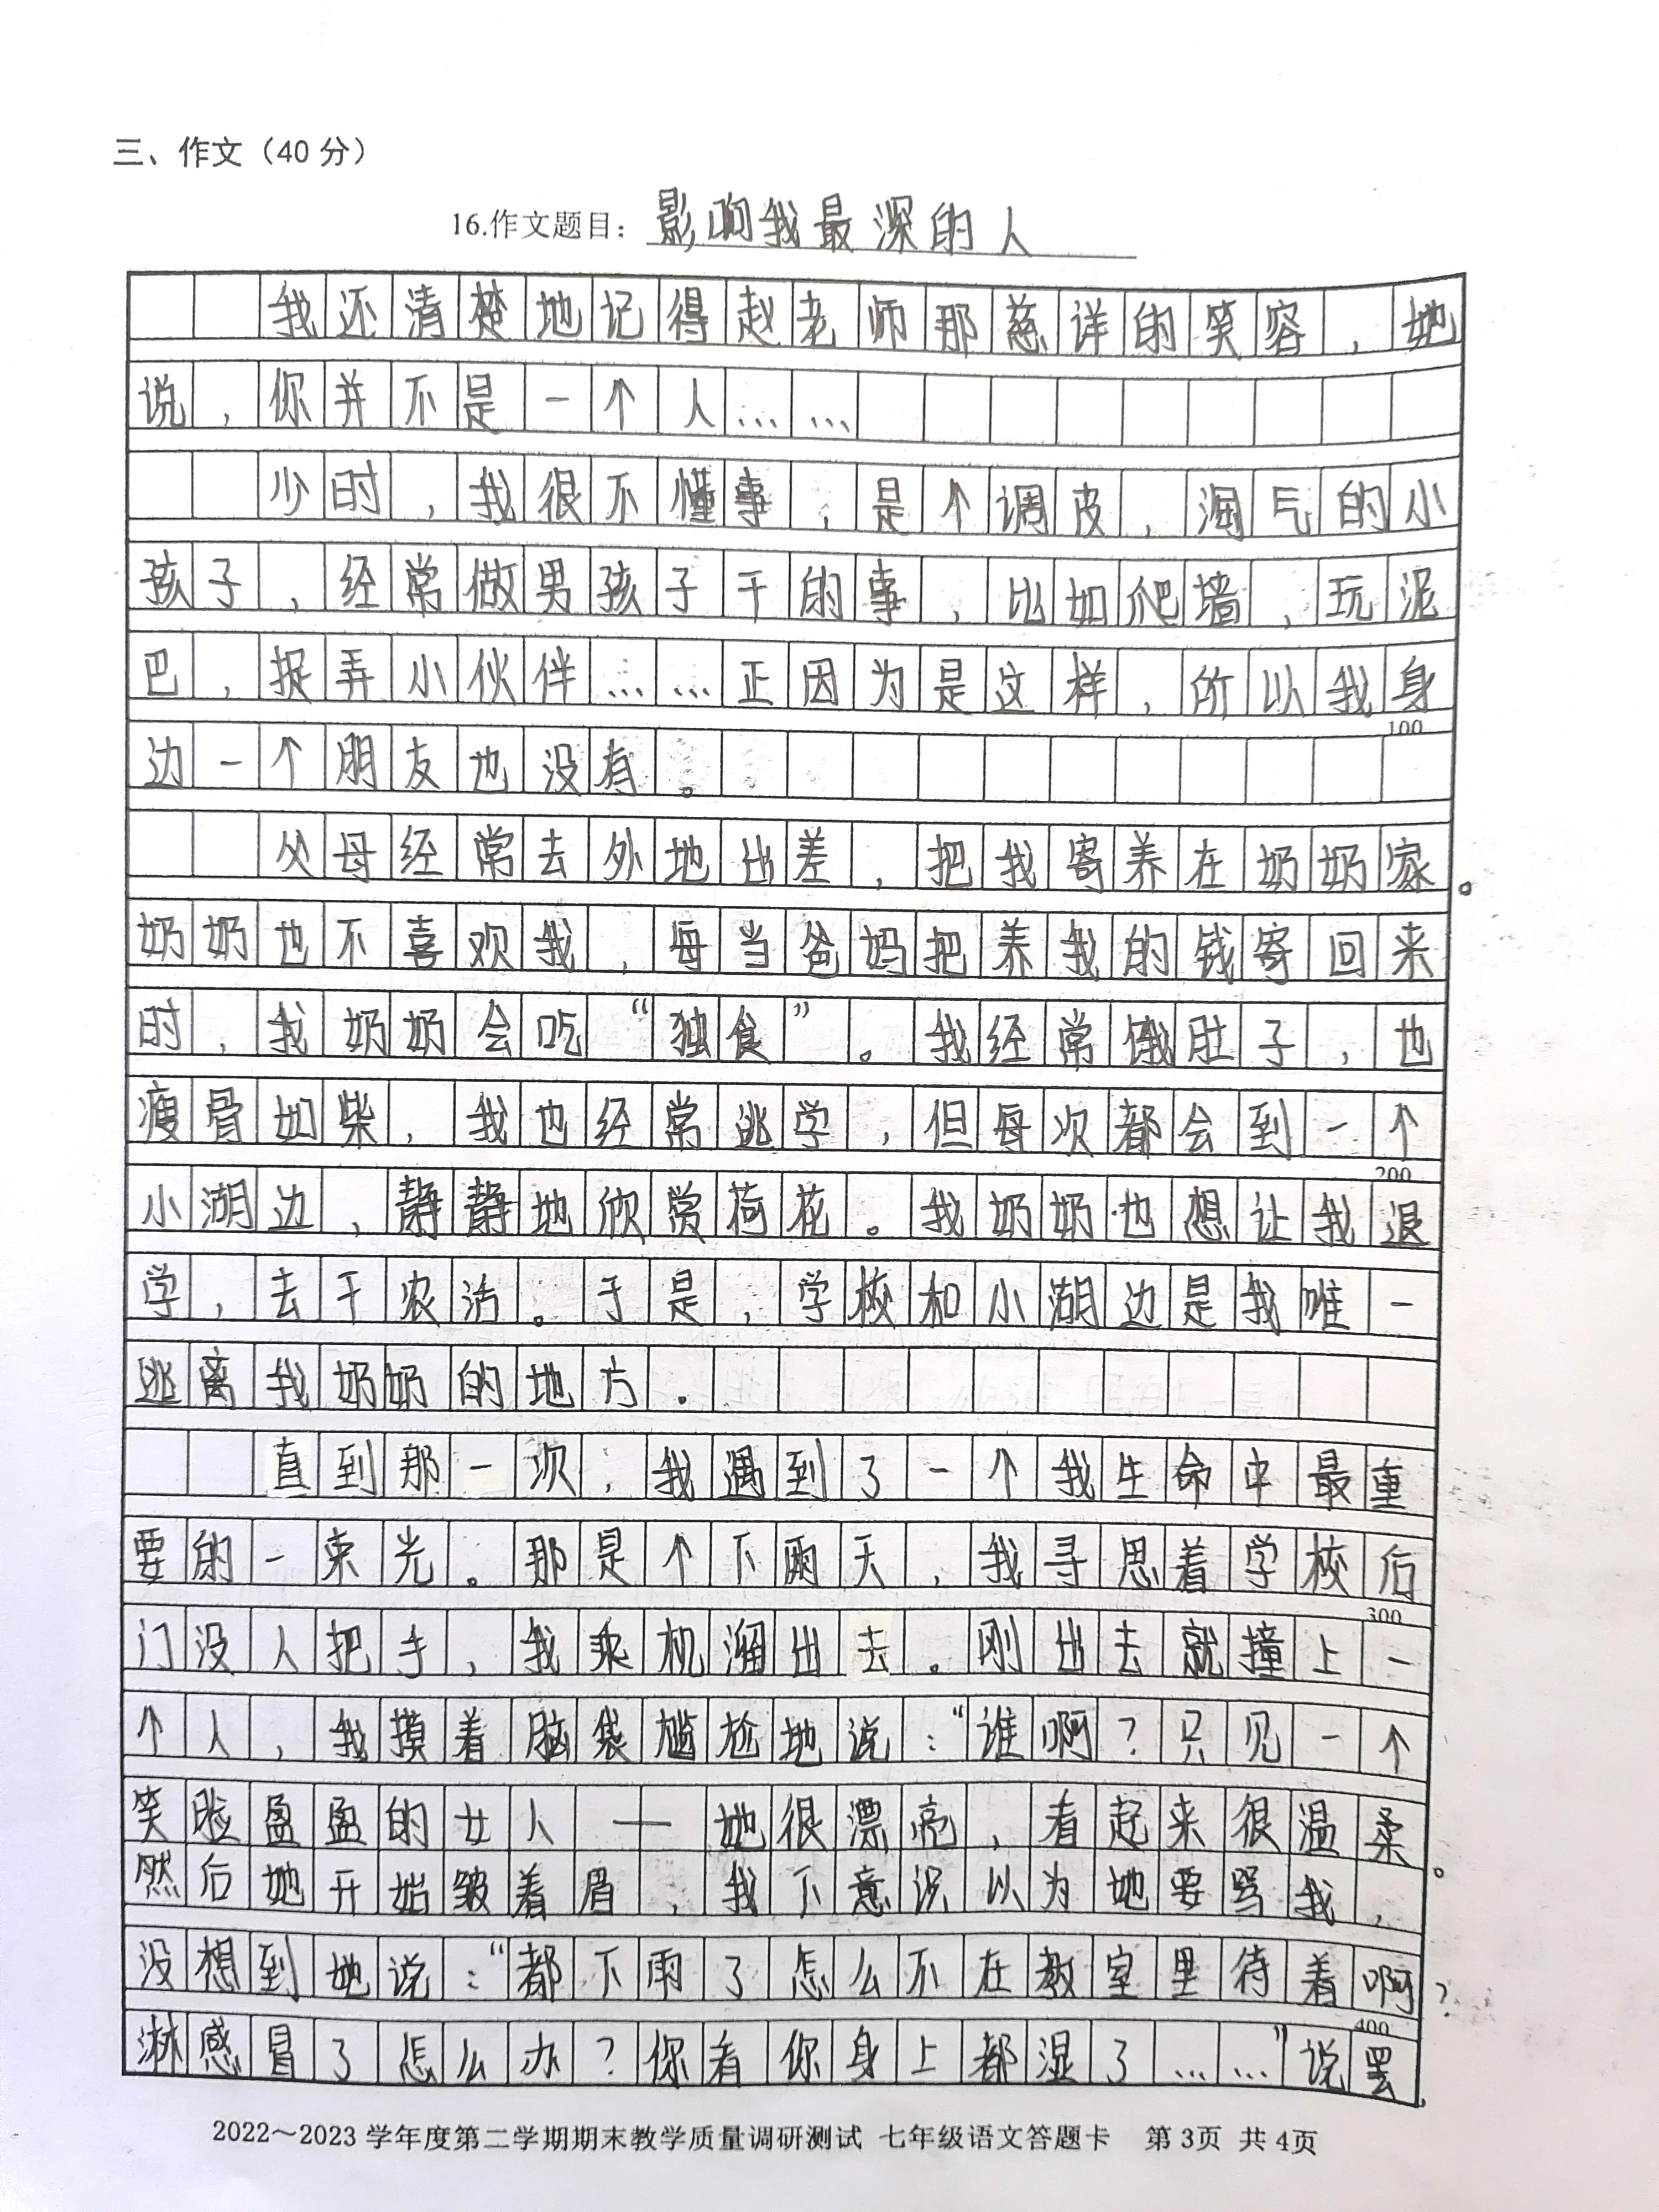 三、作文（40 分）
16.作文题目：影响我最深的人
我还清楚地记得赵老师那慈详的笑容，她
说，你并不是一个人……
少时，我很不懂事，是个调皮，淘气的小
孩子，经常做男孩子干的事，比如爬墙，玩泥
巴，捉弄小伙伴……正因为是这样，所以我身
100
边一个朋友也没有。
父母经常去外地出差，把我寄养在奶奶家。
奶奶也不喜欢我，每当爸妈把养我的钱寄回来
时，我奶奶会吃“独食”。我经常饿肚子，也
瘦骨如柴，我也经常逃学，但每次都会到一个
200
小湖边，静静地欣赏荷花。我奶奶也想让我退
学，去干农活。于是，学校和小湖边是我唯一
逃离我奶奶的地方。
直到那一次，我遇到了一个我生命中最重
要的一束光。那是个下雨天，我寻思着学校后
300
门没人把手，我乘机溜出去。刚出去就撞上一
个人，我摸着脑袋尴尬地说：“谁啊？只见一个
笑脸盈盈的女人——她很漂亮，看起来很温柔。
然后她开始皱着眉，我下意识以为她要骂我，
没想到她说：“都下雨了怎么不在教室里待着啊？
400
淋感冒了怎么办？你看你身上都湿了……”说罢，
2022～2023 学年度第二学期期末教学质量调研测试 七年级语文答题卡 第 3页 共 4页